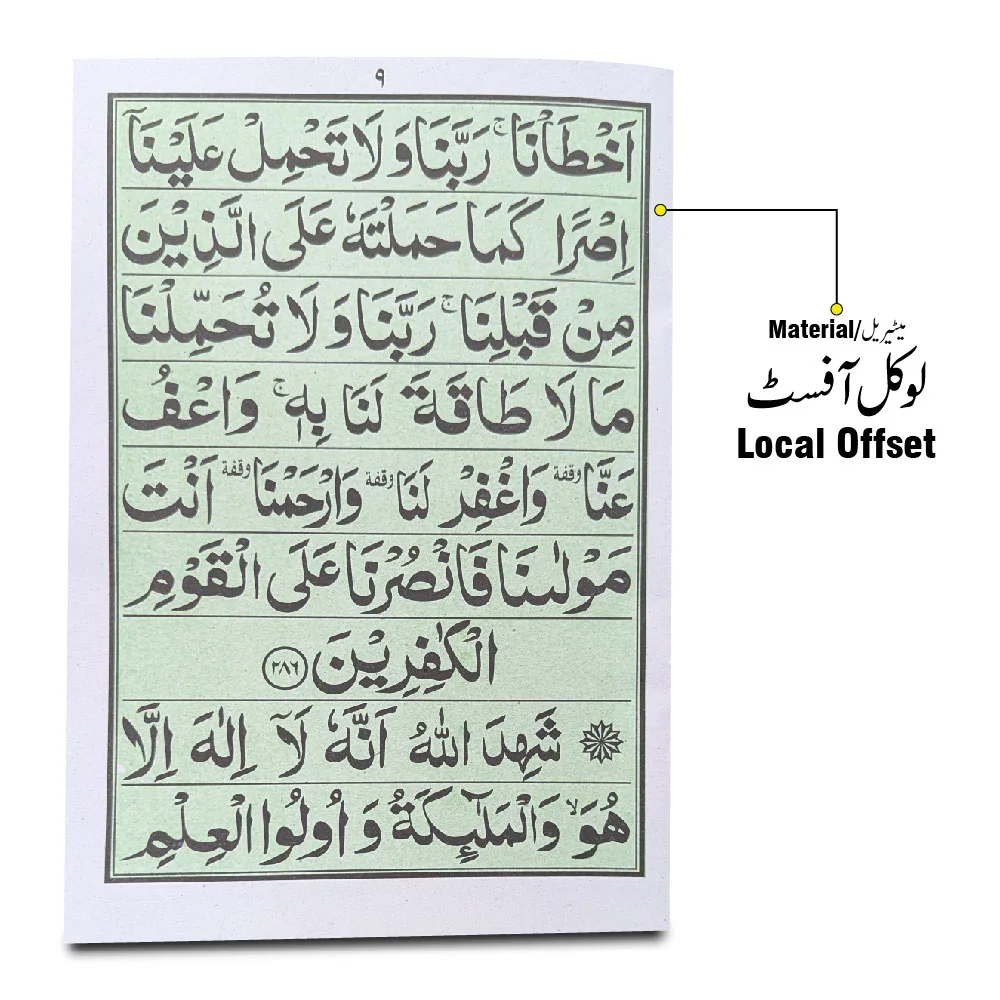 ٩
اَخْطَاْنَا ۚ رَبَّنَا وَ لَا تَحْمِلْ عَلَيْنَاۤ
اِصْرًا كَمَا حَمَلْتَهٗ عَلَى الَّذِيْنَ
مِنْ قَبْلِنَا ۚ رَبَّنَا وَ لَا تُحَمِّلْنَا
مَا لَا طَاقَةَ لَنَا بِهٖ ۚ وَاعْفُ
عَنَّا وقفة وَاغْفِرْ لَنَا وقفة وَارْحَمْنَا وقفة اَنْتَ
مَوْلٰىنَا فَانْصُرْنَا عَلَى الْقَوْمِ
الْكٰفِرِيْنَ ﴿٢٨٦﴾
شَهِدَ اللّٰهُ اَنَّهٗ لَاۤ اِلٰهَ اِلَّا
هُوَ ۙ وَالْمَلٰٓئِكَةُ وَ اُولُوا الْعِلْمِ
Material/میٹیریل
لوکل آفسٹ
Local Offset